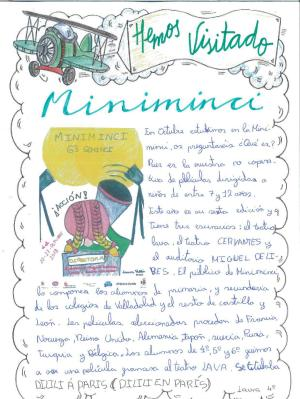 Hemos Visitado
Miniminci
MINIMINCI
6ª SEMINCI
¡ACCIÓN!
DIRECTORA
En Octubre estuvimos en la Mini-
minci, os preguntaréis ¿Qué es?
Pues es la muestra no compe
titiva de películas dirigidas a
niños de entre 7 y 12 años.
Este año es su sexta edición y
tiene tres escenarios: el teatro
lava, el teatro CERVANTES y
el auditorio MIGUEL DELI-
BES. El público de Miniminci
lo componen los alumnos de primaria, y secundaria
de los colegios de Valladolid y el resto de castilla y
León. Las películas seleccionadas proceden de Francia,
Noruega, Reino Unido, Alemania, Japón, suecia, Rusia,
Turquía y Bélgica. Los alumnos de 4º, 5º y 6º fuimos
a ver una película francesa al teatro LAVA. Se titulaba
DILILI Á PARIS (DILILI EN PARÍS)
Laura 4º